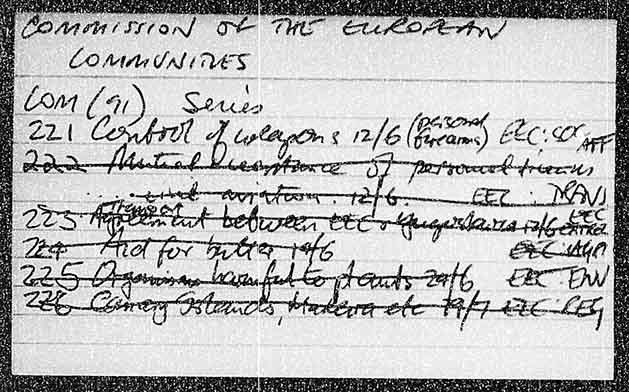 COMMISSION OF THE EUROPEAN
COMMUNITIES
COM (91) Series
221 Control of weapons 12/6 (personal firearms) EEC: SOC AFF
222 Mutual acceptance of personnel
civil aviation 12/6. EEC TRANS
223 Agreement between EEC & Yugoslavia 12/6 EEC
224 Aid for butter 19/6 EEC AGR
225 Organisms harmful to plants 24/6 EEC ENV
226 Canary Islands, Madeira etc 19/7 EEC REG